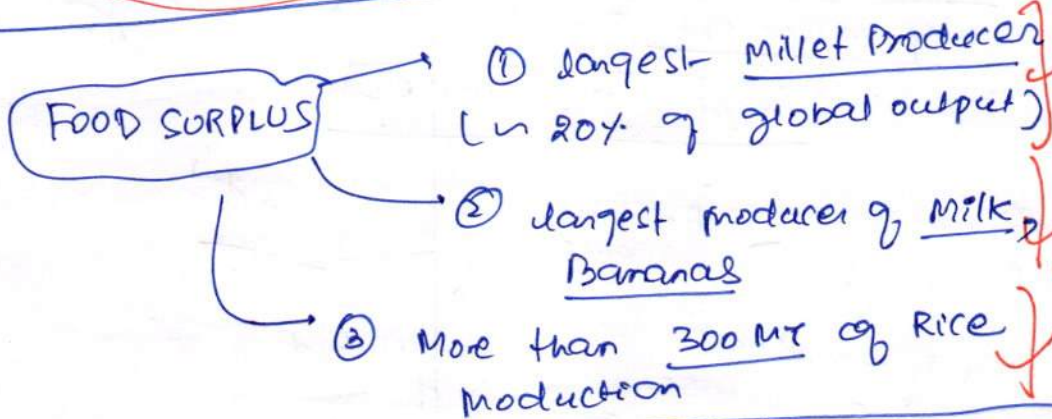 FOOD SURPLUS
① largest Millet Producer
(~ 20% of global output)
② largest producer of Milk,
Bananas
③ More than 300 MT of Rice
Production